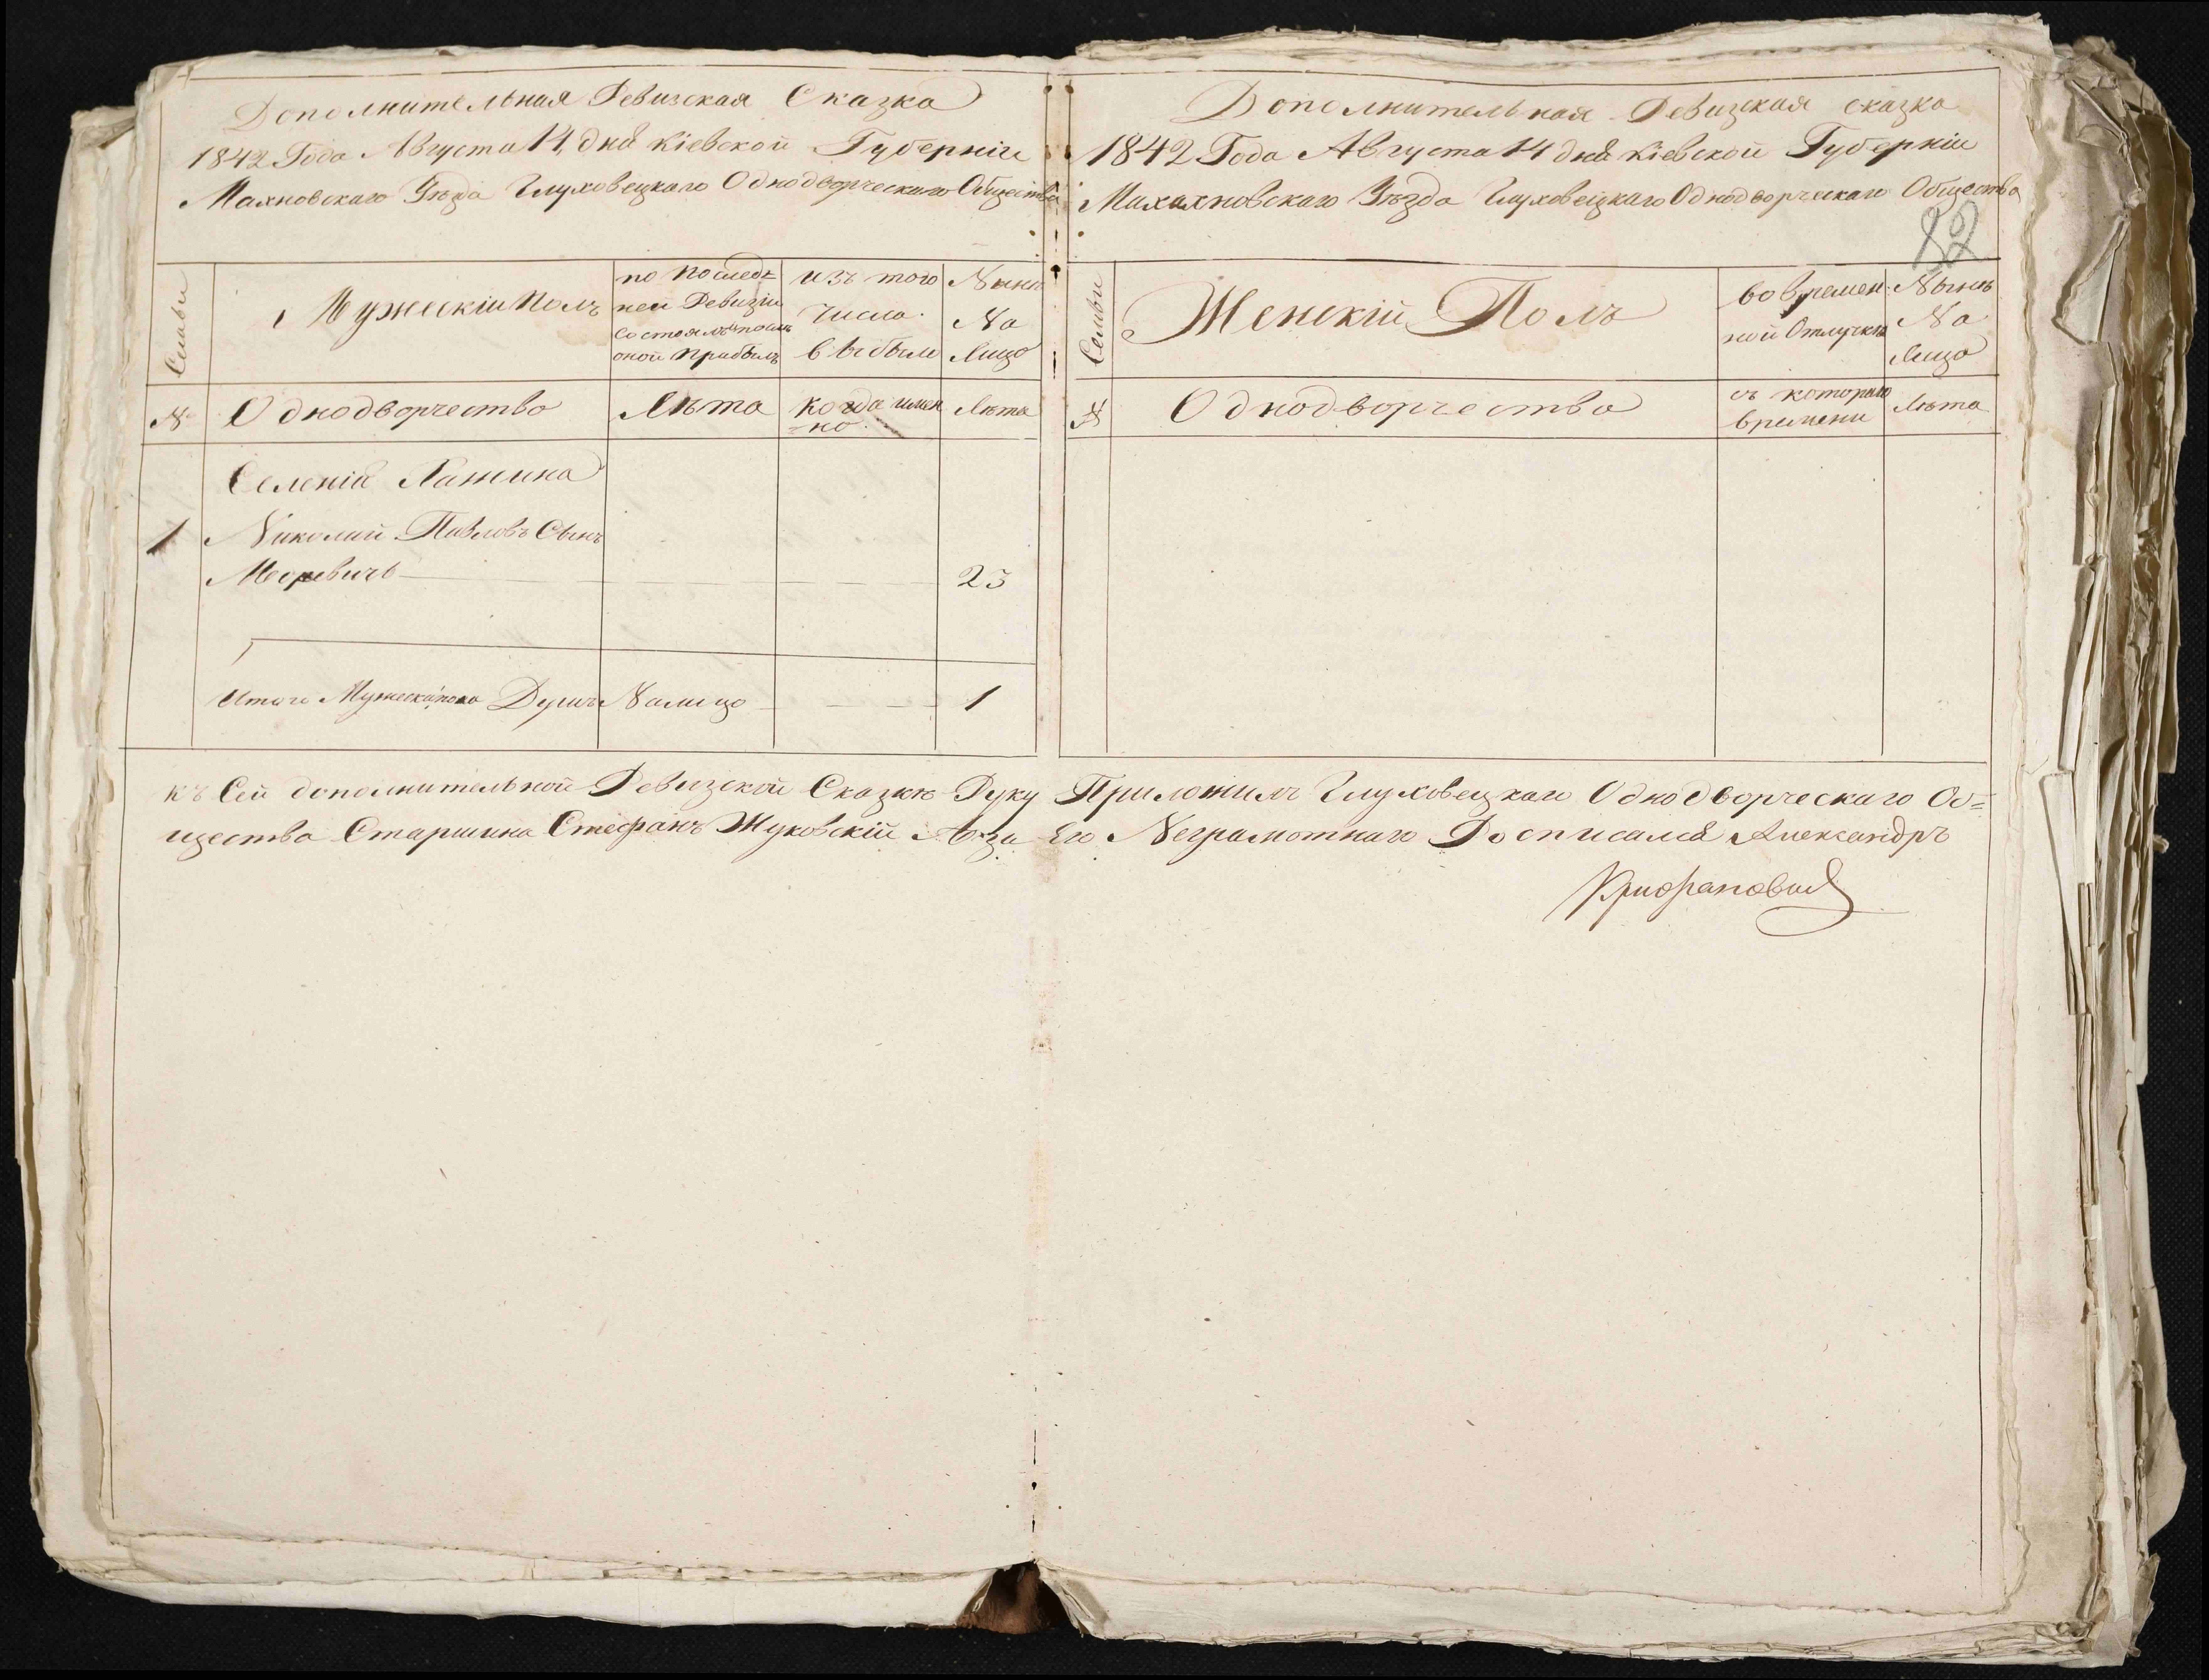 Дополнительная Ревизская Сказка
1842 Года Августа 14 дня Кіевской Губерніи
Махновскаго Уѣзда Глуховецкаго Однодворческаго Общества
Семьи
Мужескій Полъ
по послед=
ней Ревизіи
состоялъ и послѣ
оной прибылъ
изъ того
числа
выбыли
Нынѣ
На
Лицо
№
Однодворчество
Лѣта
когда имен
=но
Лѣта
Селенія
1
Николай Павловъ Сынъ
23
Итого Мужеска пола Душъ Налицо 1
Дополнительная Ревизская сказка
1842 Года Августа 14 дня Кіевской Губерніи
Махахновскаго Уѣзда Глуховецкаго Однодворческаго Общества
82
Семьи
Женскій Полъ
во времен
ной Отлучкѣ
Нынѣ
На
Лицо
№
Однодворчество
съ котораго
времени
Лѣта
къ Сей дополнительной Ревизской Сказкѣ Руку Приложилъ Глуховецкаго Однодворческаго Об=
щества Старшина Стефанъ Жуковскій А за Его Неграмотнаго Росписался Александръ